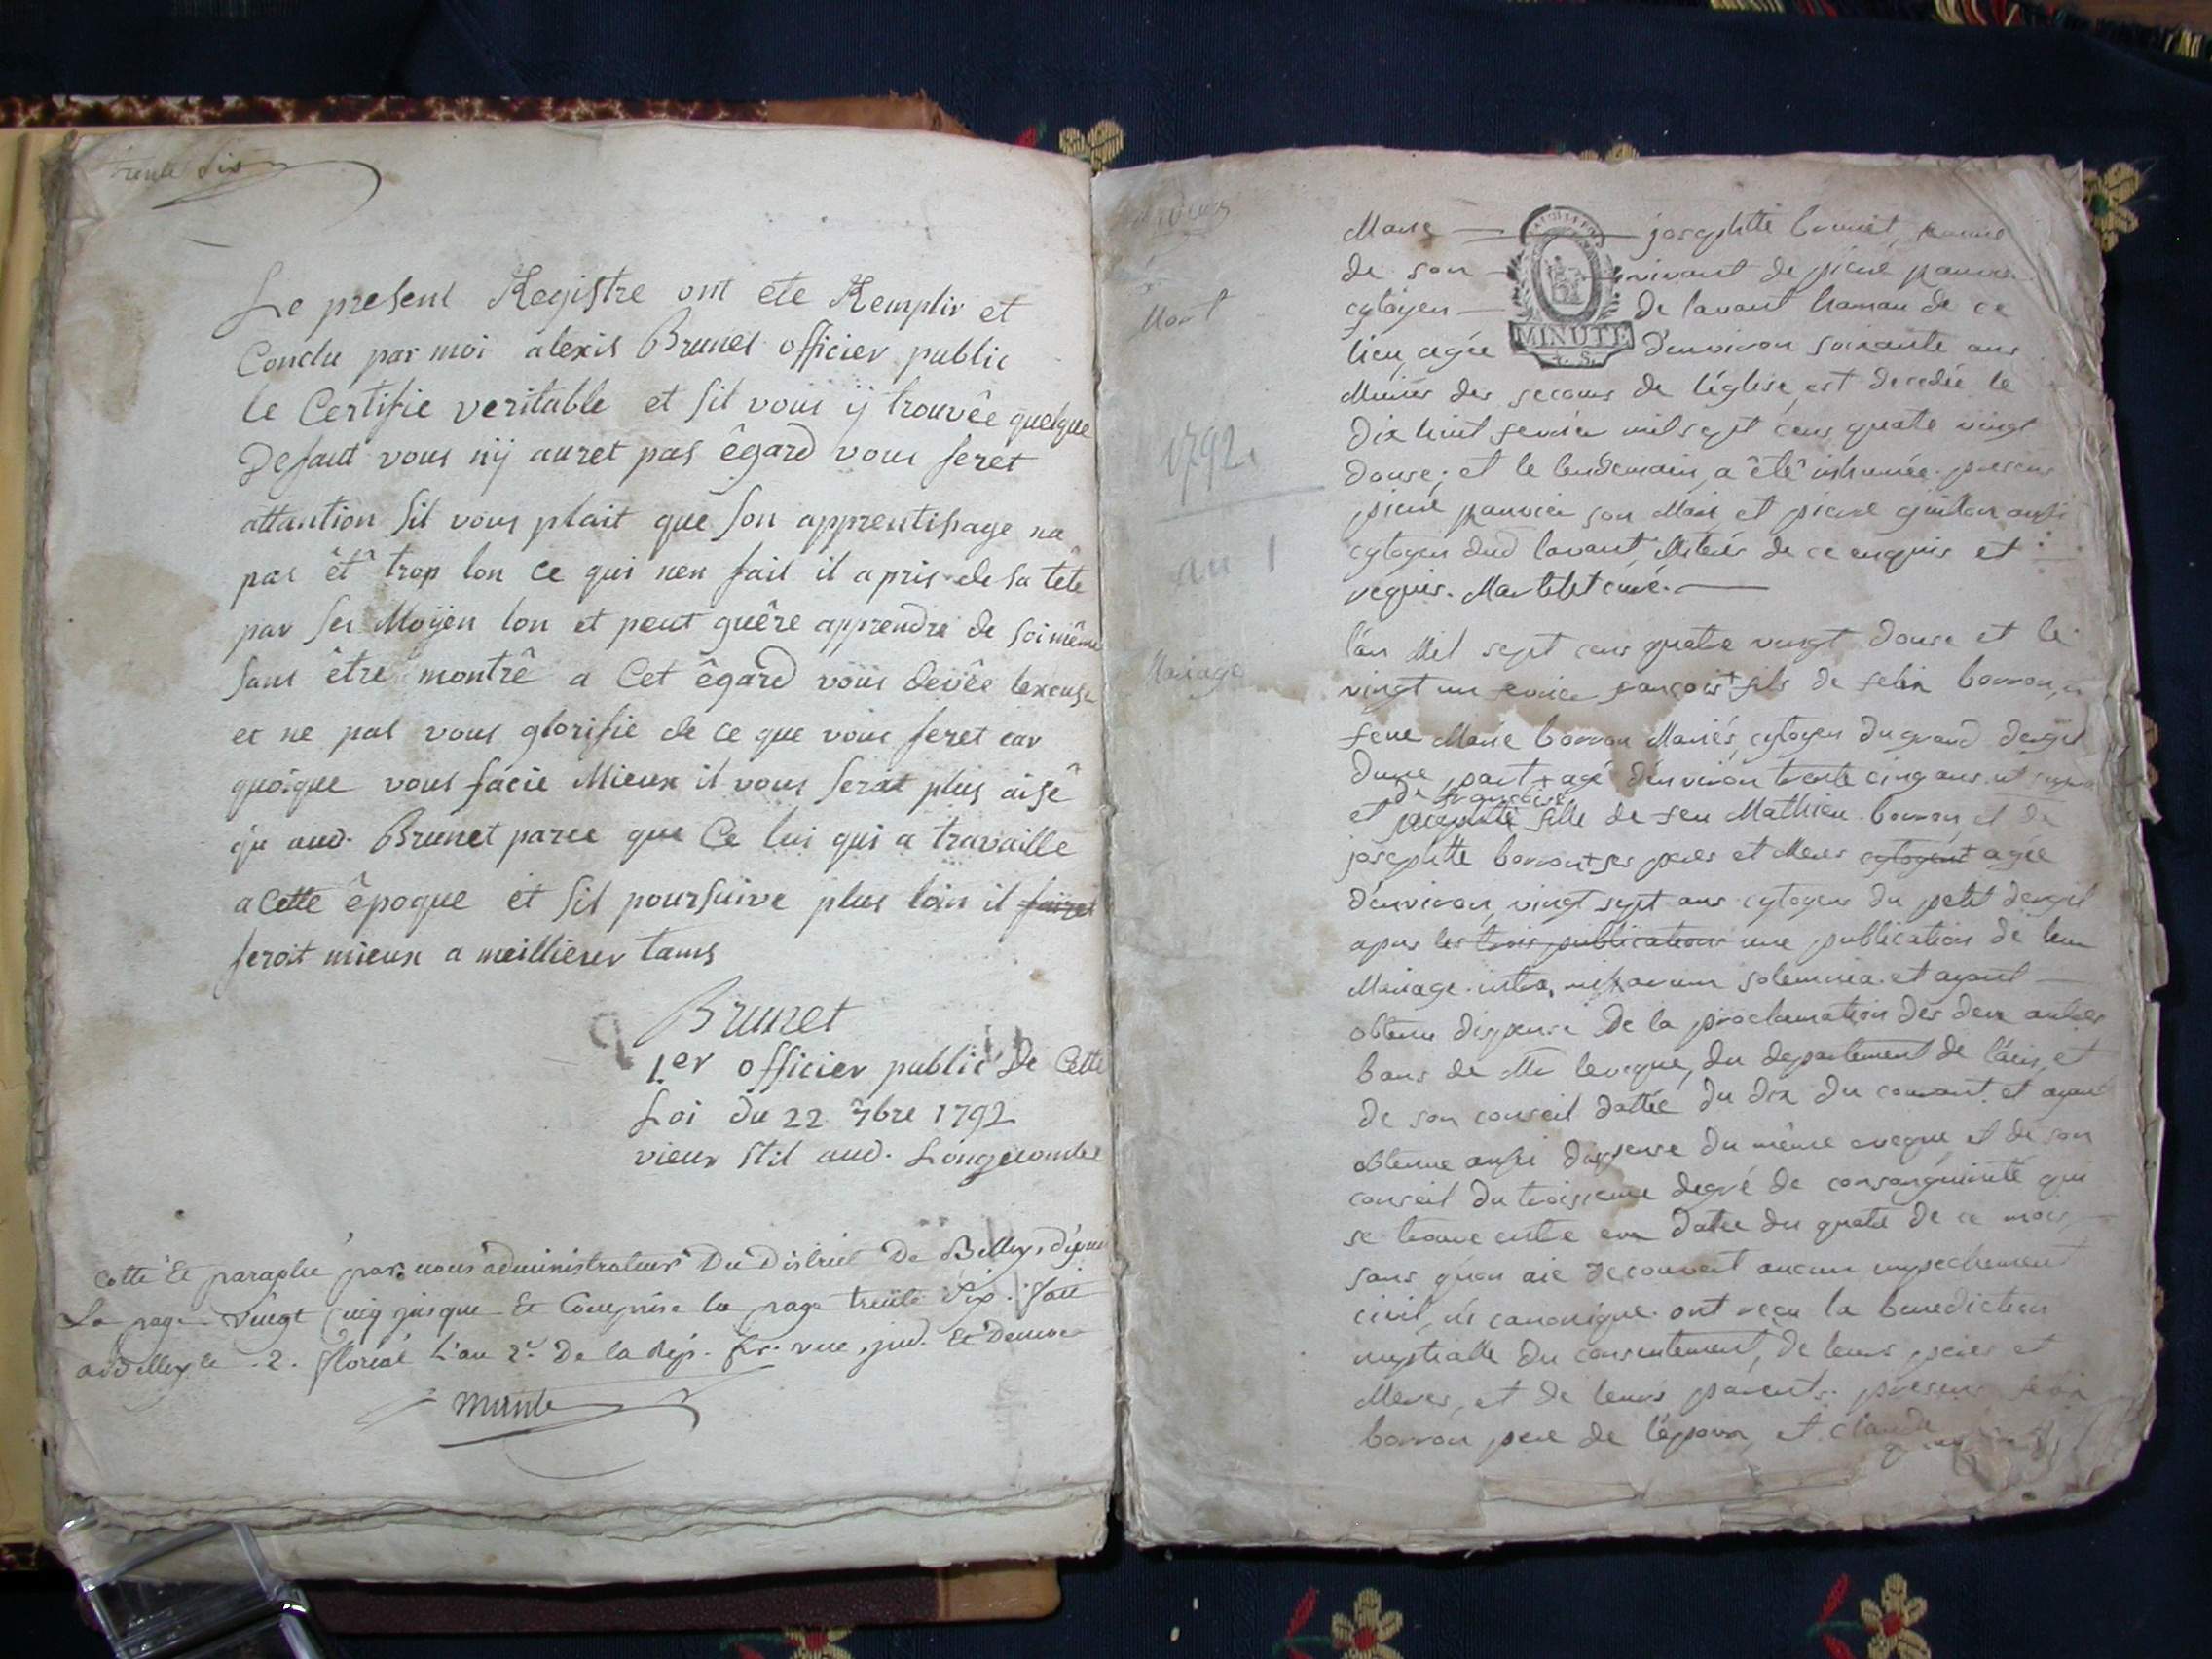 trente six
Le present Registre ont ete Remplir et
Conclu par moi alexis Brunet officier public
le Certifie veritable et sit vous ij trouvêe quelque
Defaut vous nij auret pas êgard vous feret
attantion sil vous plait que son apprentissage na
pas êtê trop lon ce qui nen fait il a pris de sa tête
par ses Moÿen lon et peut guêre apprendre de soi même
sans être montrê a Cet êgard vous devêe lexcuse
et ne pas vous glorifie de ce que vous feret car
quoique vous facie Mieux il vous serat plus aisê
qu aud. Brunet parce que Ce lui qui a travaille
a Cette êpoque et sil poursuive plus loin il fairet
feroit mieux a meillierer tams
Brunet
1er officier public de Cette
Loi du 22 7bre 1792
vieux stil aud. Longecombe
Cotté Et paraphé par nous administrateur Du District De Belley, depuis
La page vingt cinq jusque Et Comprise la page trente Six. fait
a Belley le 2. floréal L'an 2e De la rép. fr. une, ind. Et Democ
Mort
1792
an 1
Mariage
MINUTE
4. S.
Marie josephtte femme
de son vivant de pierre pauvier
cytoyen de lavant hamau de ce
lieu agée d'environ soixante ans
Munies des secours de l'église, est decedée le
dix huit fevrier mil sept cens quatre vingt
douse; et le lendemain, a été inhumée. presens
pierre pauvier son Mari et pierre aussi
cytoyen dud lavant, illiterés de ce enquis et
requis. Martelet curé.
l'an Mil sept cens quatre vingt douse et le
vingt un fevrier françois fils de felix borron, et
feue Marie borron Mariés, cytoyen du grand dergit
d'une part agé d'environ trente cinq ans
de françoise
et josephtte fille de feu Mathieu borron et de
josephtte borron ses peres et Meres cytoyens agée
d'environ, vingt sept ans cytoyens du petit dergit
apres les trois publications une publication de leur
Mariage intra missarum solemnia et ayant
obtenu dispense de la proclamation des deux autres
bans de Mr leveque, du departement de l'ain, et
de son conseil dattée du dix du courant et ayant
obtenue aussi dispense du même eveque, et de son
conseil du troisieme degré de consanguinité qui
se trouve entre eux datée du quatre de ce mois
sans qu'on aie decouvert aucun empechement
civil, ni canonique. ont reçu la benediction
nuptialle du consentement, de leurs peres et
Meres, et de leurs parents. presens felix
borron pere de l'époux, et claude